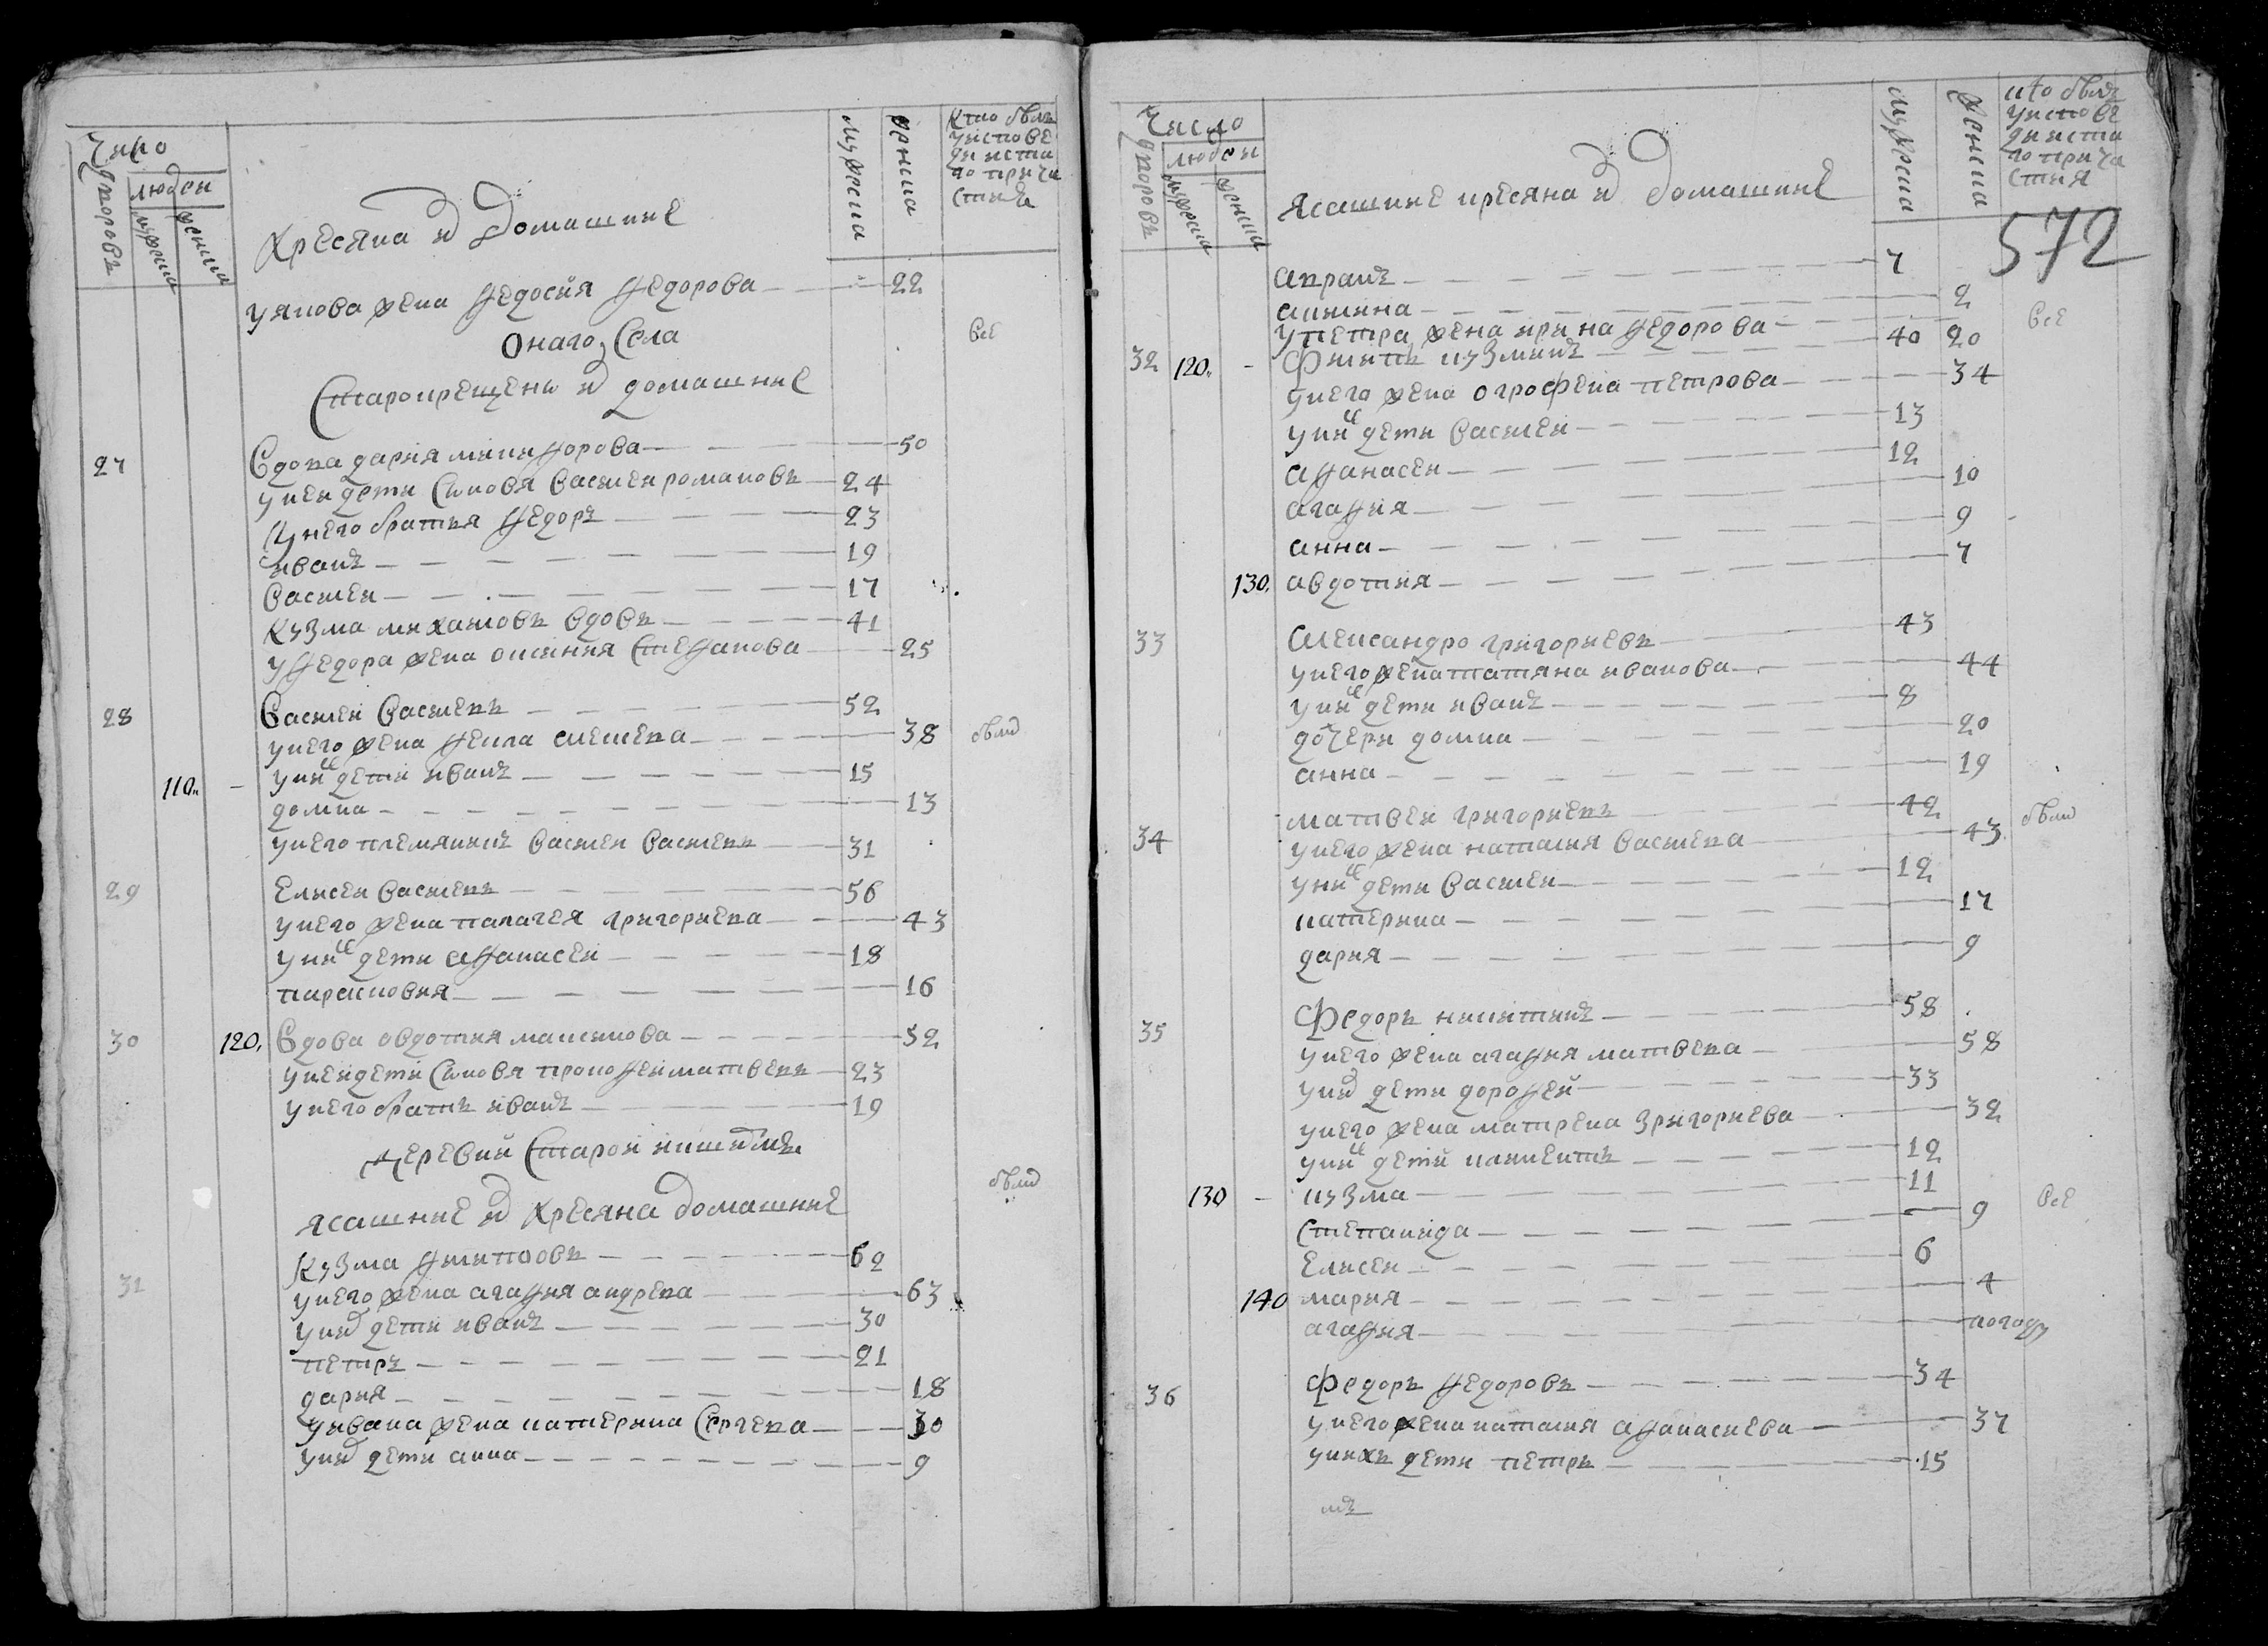 Число
дворовъ
людеи
мужеска
женска
Кресяна и Домашние
мужеска
женска
Кто былъ
уиспове
ди исвта
го прича
стия
у якова жена федосия федорова 22
Онаго Села
все
Старокрещены и домашние
27 Вдова дария микифорова 50
у неи дети Сыновя Василеи романовъ 24
У него братия федоръ 23
иванъ 19
Василеи 17
Кузма михаиловъ вдовъ 41
у федора жена оксиния Стефанова 25
28 Василеи Василевъ 52
у него жена фекла алексеева 38 были
110 у них дети иванъ 15
домна 13
у него племянник Василеи Василевъ 31
29 Елисеи Василевъ 56
у него жена палагея григориева 43
у них дети афанасеи 18
парасковия 16
30 120 Вдова овдотия максимова 52
у неи дети Сыновя прокофеи матвеевъ 23
у него братъ иванъ 19
Деревни Старои
были
ясашные и Кресяна домашние
31 Кузма филиповъ 62
у него жена агафия андреева 63
у них дети иванъ 30
петръ 21
дария 18
у ивана жена катерина Сергеева 30
у них дети анна 9
Число
дворовъ
людеи
мужеска
женска
Ясашные кресяна и домашние
мужеска
женска
кто былъ
уиспове
ди иста
го прича
стия
572
7
акилина 2
все
у петра жена ирина федорова 20
32 120 Филипъ кузминъ 40
у него жена огрофена петрова 34
у них дети Василеи 13
афанасеи 12
агафия 10
анна 9
130 авдотия 7
33 Александро григориевъ 43
у него жена татияна иванова 44
у них дети иванъ 8
дочери домна 20
анна 19
34 матвеи григориевъ 42 были
у него жена наталия Василева 43
у них дети Василеи 12
катерина 17
дария 9
35 Федоръ никитинъ 58
у него жена агафия матвеева 58
у них дети дорофеи 33
у него жена матрена григориева 32
у них дети 12
130 кузма 11 все
Степанида 9
Елисеи 6
140 мария 4
агафия погоду
36 Федоръ федоровъ 34
у него жена наталия афанасиева 37
у нихъ дети петръ 15